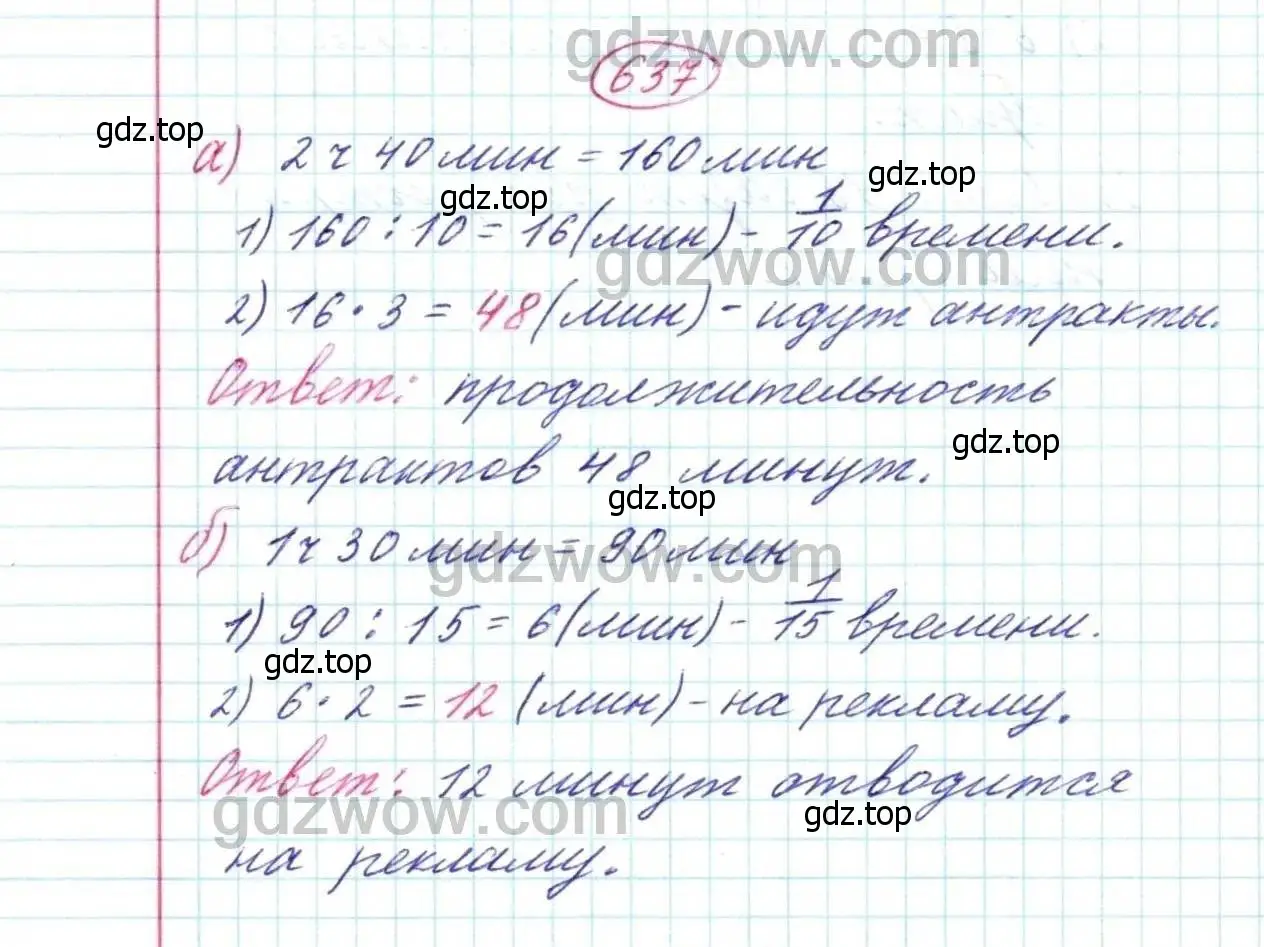 gdzwow.com
637
gdz.top
а) 2 ч 40 мин = 160 мин
gdz.top gdz.top
1) 160 : 10 = 16 (мин) - 1/10 времени.
gdzwow.com
2) 16 · 3 = 48 (мин) - идут антракты.
Ответ: продолжительность
gdz.top
антрактов 48 минут.
gdz.top
б) 1 ч 30 мин = 90 мин
gdzwow.com
1) 90 : 15 = 6 (мин) - 1/15 времени.
gdz.top
2) 6 · 2 = 12 (мин) - на рекламу.
Ответ: 12 минут отводится
gdzwow.com gdz.top
на рекламу.